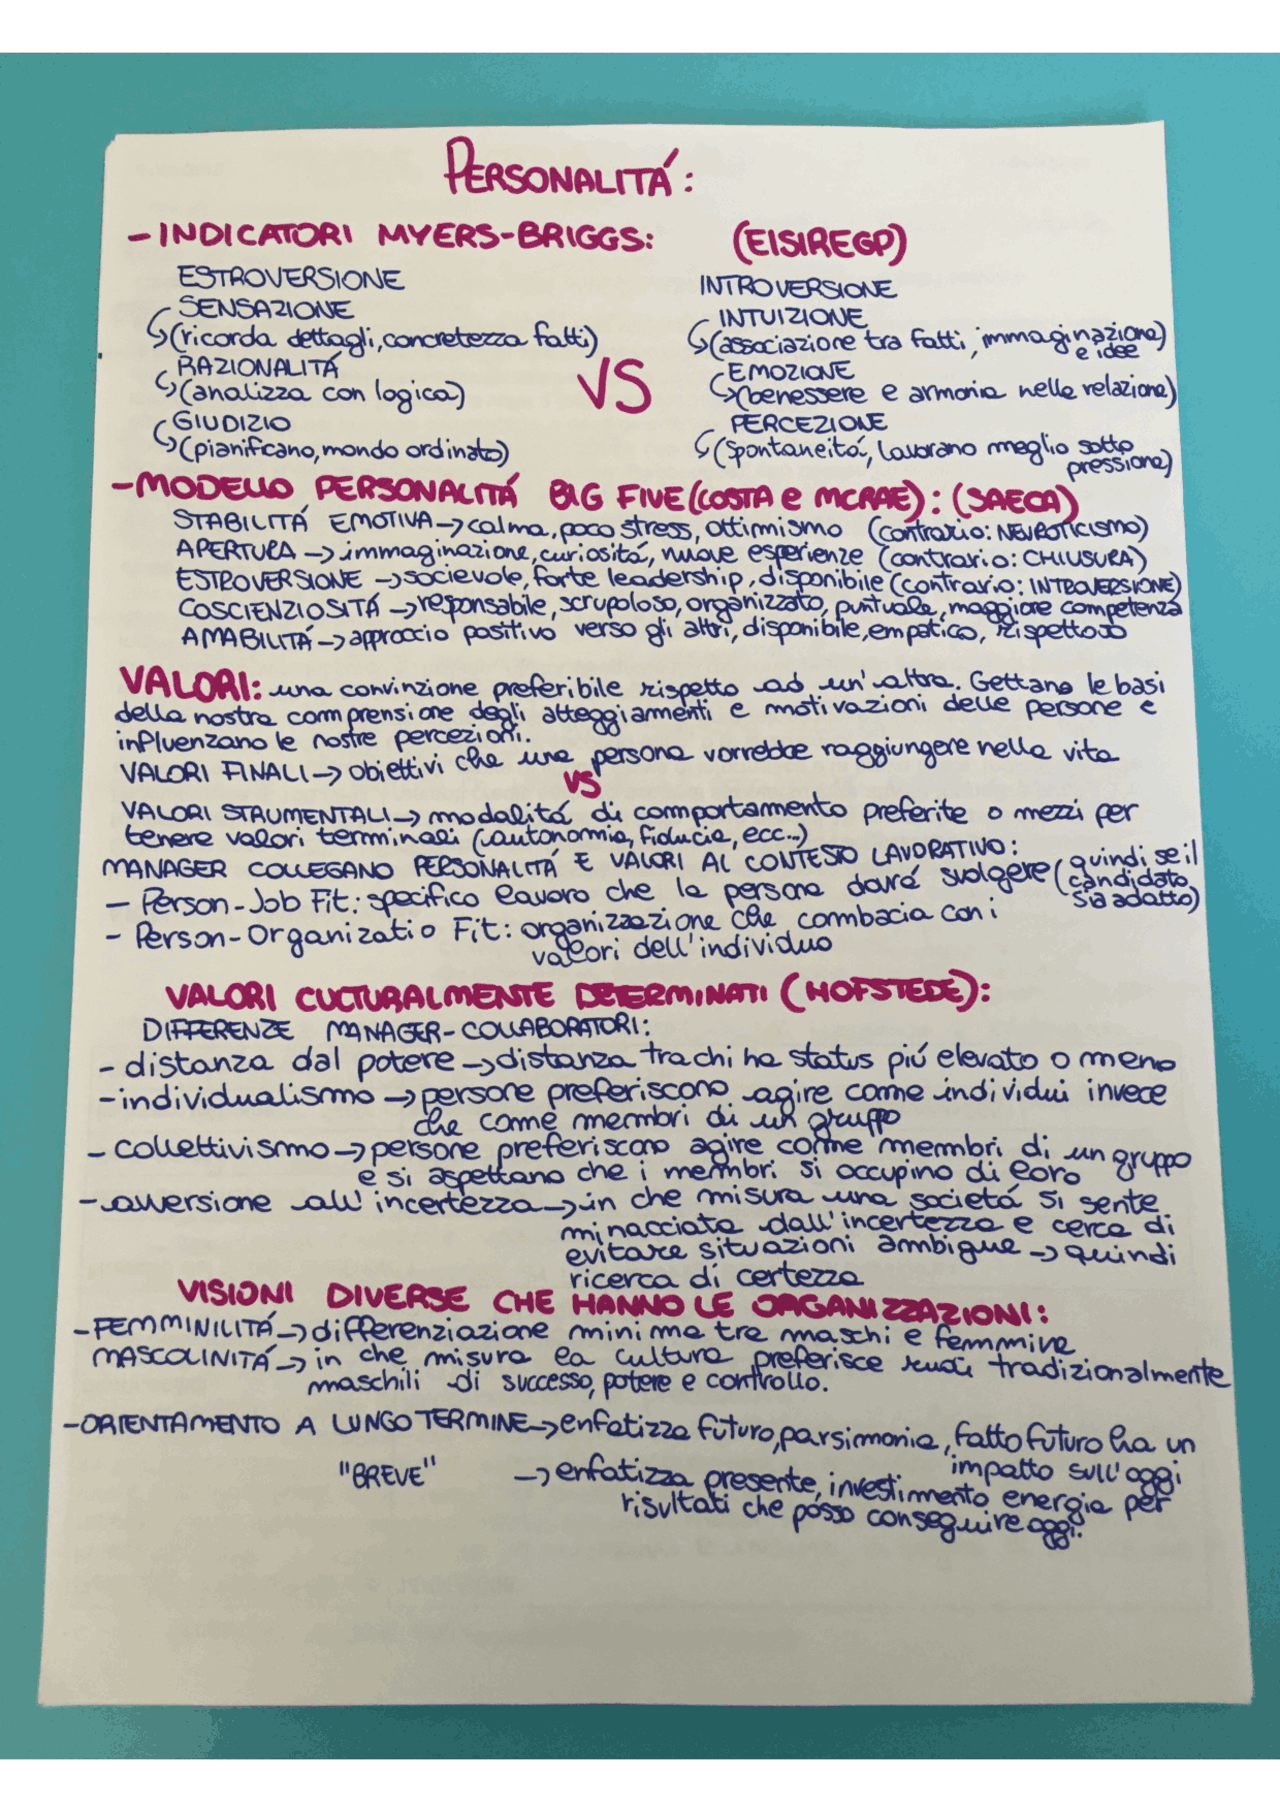 PERSONALITÁ:
- INDICATORI MYERS-BRIGGS: (EISIREGP)
ESTROVERSIONE
SENSAZIONE
↳(ricorda dettagli, concretezza fatti)
RAZIONALITÁ
↳(analizza con logica)
GIUDIZIO
↳(pianificano, mondo ordinato)
VS
INTROVERSIONE
INTUIZIONE
↳(associazione tra fatti, immaginazione)
e idee
EMOZIONE
↳(benessere e armonia nelle relazione)
PERCEZIONE
↳(spontaneitá, lavorano meglio sotto
pressione)
- MODELLO PERSONALITÁ BIG FIVE (COSTA e MCRAE): (SAECA)
STABILITÁ EMOTIVA → calma, poco stress, ottimismo (contrario: NEUROTICISMO)
APERTURA → immaginazione, curiositá, nuove esperienze (contrario: CHIUSURA)
ESTROVERSIONE → socievole, forte leadership, disponibile (contrario: INTROVERSIONE)
COSCIENZIOSITÁ → responsabile, scrupoloso, organizzato, puntuale, maggiore competenza
AMABILITÁ → approccio positivo verso gli altri, disponibile, empatico, rispettoso
VALORI: una convinzione preferibile rispetto ad un'altra. Gettano le basi
della nostra comprensione degli atteggiamenti e motivazioni delle persone e
influenzano le nostre percezioni.
VALORI FINALI → obiettivi che una persona vorrebbe raggiungere nella vita
VS
VALORI STRUMENTALI → modalitá di comportamento preferite o mezzi per
tenere valori terminali (autonomia, fiducia, ecc...)
MANAGER COLLEGANO PERSONALITÁ E VALORI AL CONTESTO LAVORATIVO:
- Person-Job Fit: specifico lavoro che la persona dovrá svolgere (quindi se il
candidato
sia adatto)
- Person-Organizatio Fit: organizzazione che combacia con i
valori dell'individuo
VALORI CULTURALMENTE DETERMINATI (HOFSTEDE):
DIFFERENZE MANAGER-COLLABORATORI:
- distanza dal potere → distanza tra chi ha status piú elevato o meno
- individualismo → persone preferiscono agire come individui invece
che come membri di un gruppo
- collettivismo → persone preferiscono agire come membri di un gruppo
e si aspettano che i membri si occupino di loro
- avversione all'incertezza → in che misura una societá si sente
minacciata dall'incertezza e cerca di
evitare situazioni ambigue → quindi
ricerca di certezza
VISIONI DIVERSE CHE HANNO LE ORGANIZZAZIONI:
- FEMMINILITÁ → differenziazione minima tra maschi e femmine
MASCOLINITÁ → in che misura la cultura preferisce ruoli tradizionalmente
maschili di successo, potere e controllo.
- ORIENTAMENTO A LUNGO TERMINE → enfatizza futuro, parsimonia, fatto futuro ha un
impatto sull'oggi
"BREVE" → enfatizza presente, investimento energia per
risultati che posso conseguire oggi.